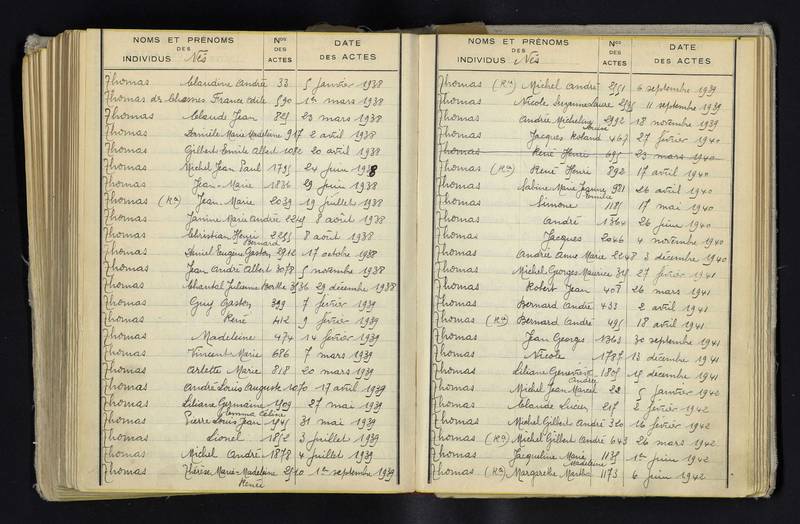 NOMS ET PRÉNOMS
DES
INDIVIDUS Nés
Nos
DES
ACTES
DATE
DES ACTES
Thomas Claudine André 33 5 janvier 1938
Thomas des Chesnes France Odile 590 1er mars 1938
Thomas Claude Jean 825 23 mars 1938
Thomas Danièle Marie Madeleine 917 2 avril 1938
Thomas Gilbert Emile Albert 1082 20 avril 1938
Thomas Michel Jean Paul 1795 24 juin 1938
Thomas Jean-Marie 1836 29 juin 1938
Thomas (Ra) Jean-Marie 2039 19 juillet 1938
Thomas Janine Marie Andrée 8 août 1938
Thomas Christian Henri 2255 8 août 1938
Bernard
Thomas Daniel Eugène Gaston 2912 17 octobre 1938
Thomas Jean André Albert 3078 5 novembre 1938
Thomas Chantal Julienne Berthe 3536 29 décembre 1938
Thomas Guy Gaston 399 7 février 1939
Thomas René 412 9 février 1939
Thomas Madeleine 474 14 février 1939
Thomas Vincent-Marie 686 7 mars 1939
Thomas Arlette Marie 818 20 mars 1939
Thomas André Louis Auguste 1070 17 avril 1939
Thomas Liliane Germaine 1509 27 mai 1939
Gemma Céline
Thomas Pierre Louis Jean 1545 31 mai 1939
Thomas Lionel 1852 3 juillet 1939
Thomas Michel André 1878 4 juillet 1939
Thomas Thérèse Marie-Madeleine 2510 1er septembre 1939
Renée
NOMS ET PRÉNOMS
DES
INDIVIDUS Nés
Nos
DES
ACTES
DATE
DES ACTES
Thomas (Ra) Michel André 2551 6 septembre 1939
Thomas Nicole Suzanne Laure 11 septembre 1939
Thomas André Michelin 2992 18 novembre 1939
Thomas Jacques Roland 467 27 février 1940
Thomas René Henri 695 23 mars 1940
Thomas (Ra) René Henri 892 17 avril 1940
Thomas Sabine Marie Jeanne 981 26 avril 1940
Emilie
Thomas Simone 1185 17 mai 1940
Thomas André 1564 26 juin 1940
Thomas Jacques 2046 4 novembre 1940
Thomas Andrée Anne Marie 2248 3 décembre 1940
Thomas Michel Georges Maurice 27 février 1941
Thomas Robert Jean 408 26 mars 1941
Thomas Bernard André 433 2 avril 1941
Thomas (Ra) Bernard André 495 18 avril 1941
Thomas Jean Georges 1363 30 septembre 1941
Thomas Nicole 1787 13 décembre 1941
Thomas Liliane Geneviève 1805 15 décembre 1941
Andrée
Thomas Michel Jean Marcel 22 5 janvier 1942
Thomas Claude Lucien 217 2 février 1942
Thomas Michel Gilbert André 320 16 février 1942
Thomas (Ra) Michel Gilbert André 643 26 mars 1942
Thomas Jacqueline Marie 1135 1er juin 1942
Madeleine
Thomas (Ra) Margarethe Martha 1173 6 juin 1942